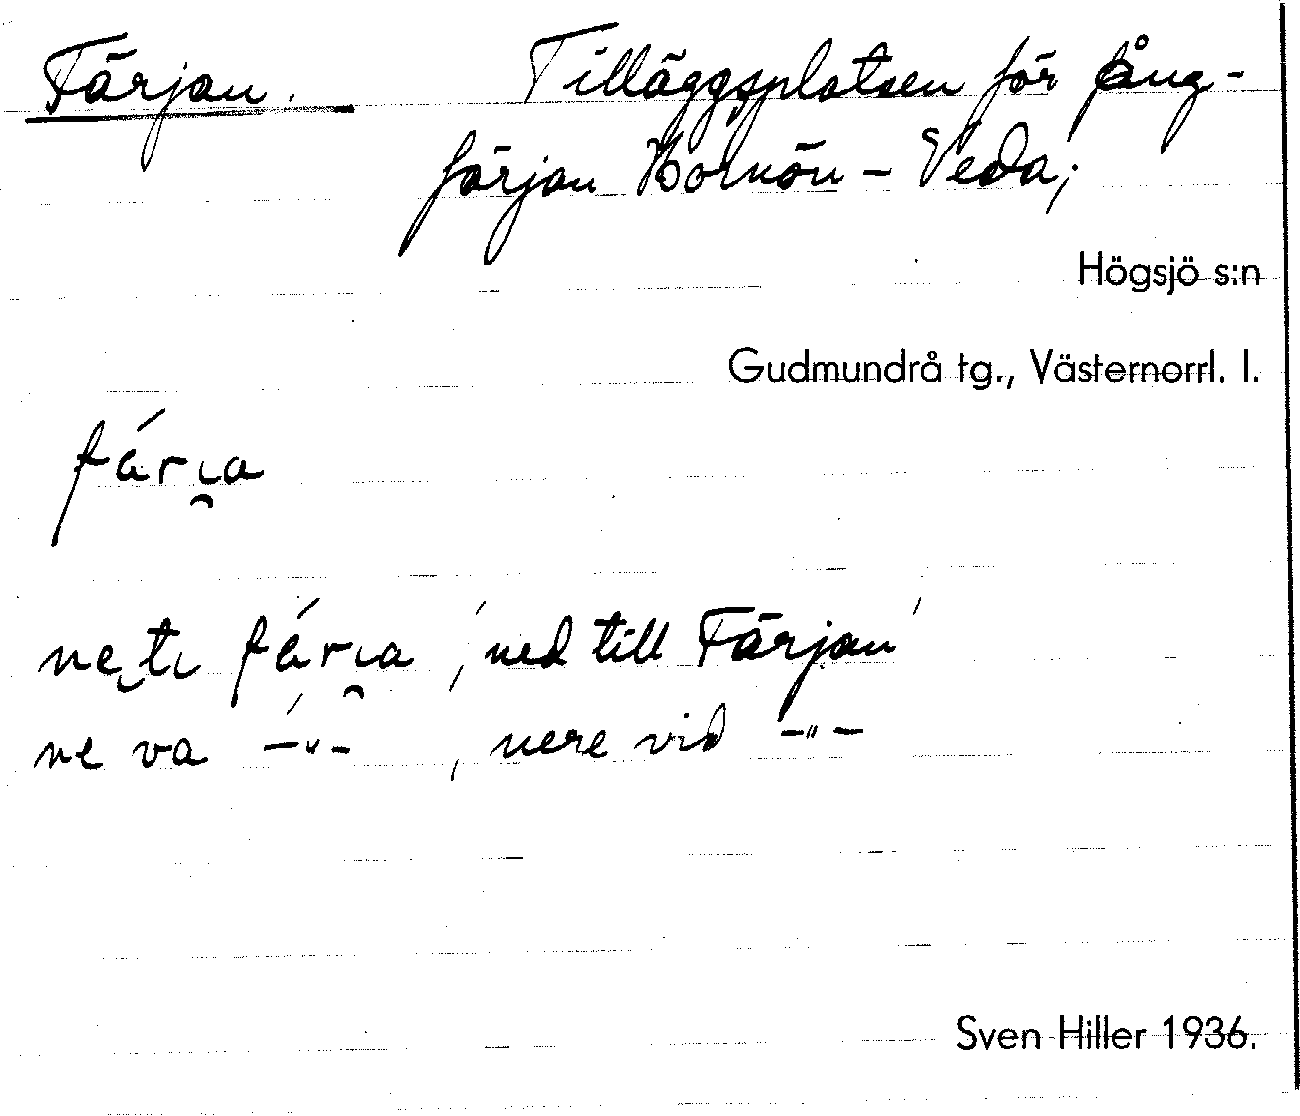 Färjan. Tilläggsplatsen för ång-
färjan Hornön - Veda;
Högsjö s:n
Gudmundrå tg., Västernorrl. l.
fárı̯a
ne tı fárı̯a, 'ned till Färjan'
ne va -"-, nere vid -"-
Sven Hiller 1936.